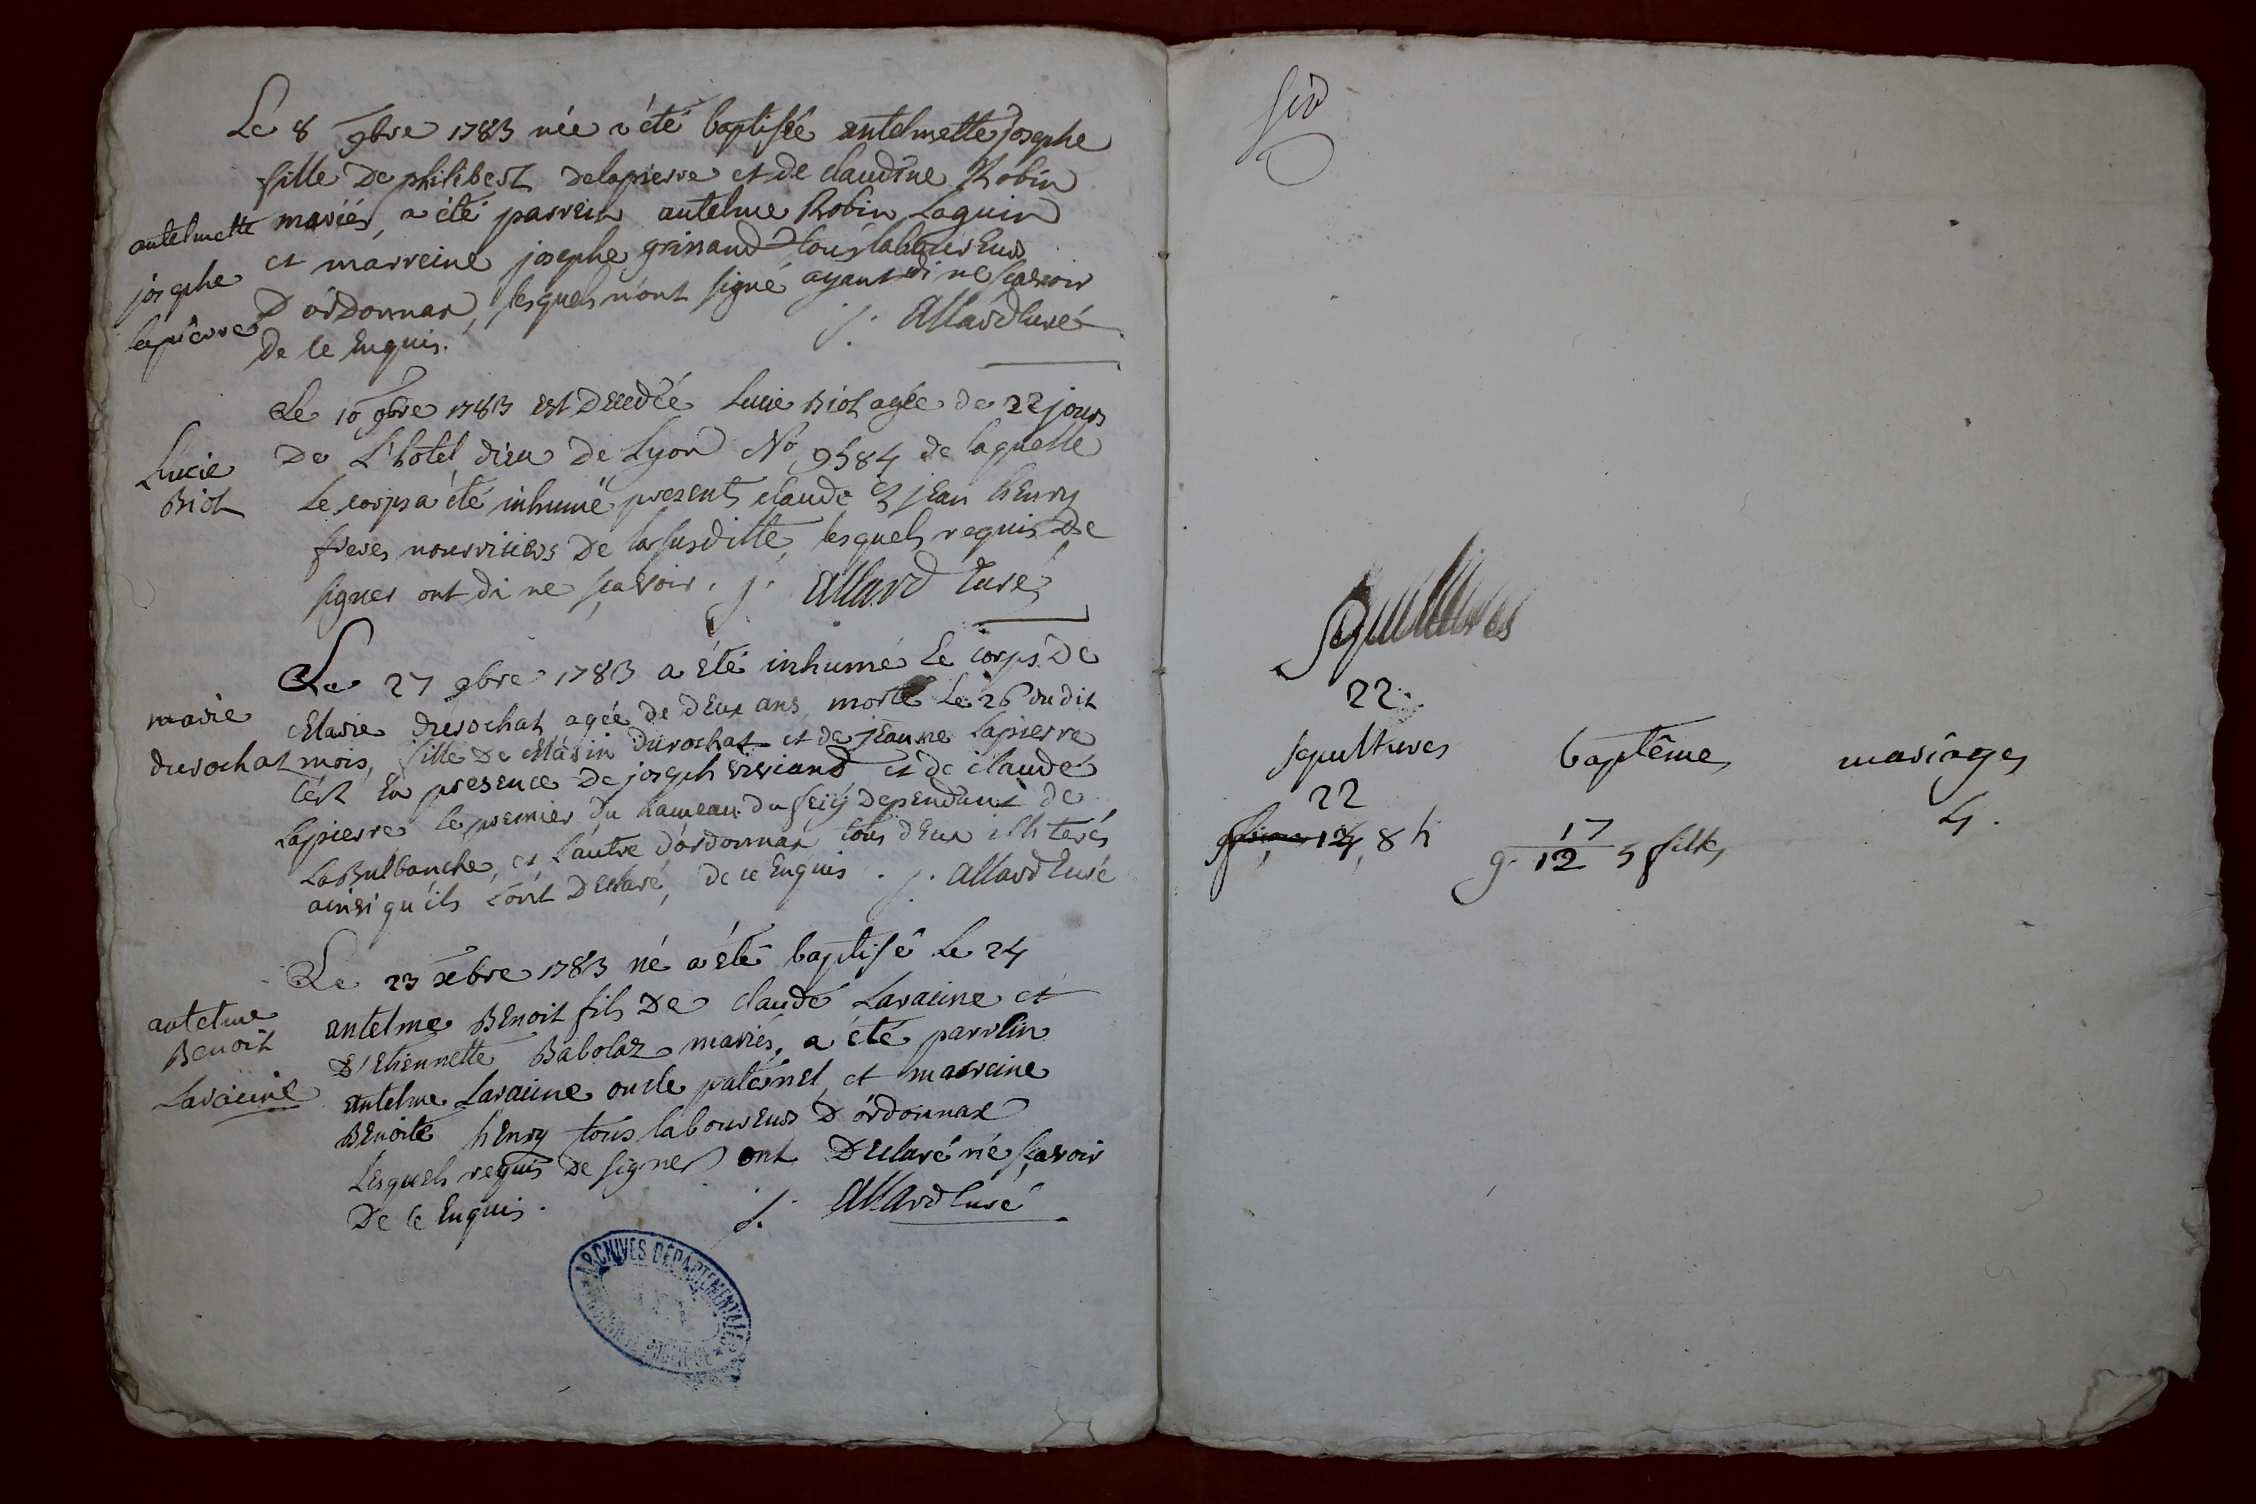 Le 8 9bre 1783 née a été baptisée antelmette josephe
fille De philibert delapierre et de claudine Robin
mariés, a été parrein antelme Robin Laguin
et marreine josephe grinand tous laboureurs
D'ordonnax, lesquels n'ont signé ayant di ne sçavoir
De ce Enquis. j. Allard Curé
antelmette
josephe
lapierre
Le 10 9bre 1783 est Decedée Lucie Biol agée de 22 jours
De L'hotel dieu De Lyon No 9584 de laquelle
Le corps a été inhumé presents claude & jean henry
freres nourriciers De la susditte, lesquels requis De
signer ont di ne sçavoir. j. Allard Curé
Lucie
Biol
Le 27 9bre 1783 a été inhumé Le corps De
Marie durochat agée de Deux ans morte Le 26 du dit
mois, fille De Marin durochat et de jeanne Lapierre
c'est En presence De joseph viviand et de claude
Lapierre le premier du hameau du Dependant de
La Bulbanche, et L'autre d'ordonnax tous deux illiterés
ainsi qu'ils l'ont Declaré, De ce Enquis. j. Allard Curé
marie
durochat
Le 23 xbre 1783 né a été baptisé Le 24
antelme Benoit fils De claude Laracine et
D'Etiennette Babolaz mariés, a été parrein
antelme Laracine oncle paternel et marreine
Benoite henry tous laboureurs D'ordonnax
Lesquels requis De signer ont Declaré ne sçavoir
De ce Enquis. j. Allard Curé
antelme
Benoit
Laracine
ARCHIVES DÉPARTEMENTALES
Sepultures
22
sepultures baptêmes mariages
22 17 4.
8 h g. 12 5 filles